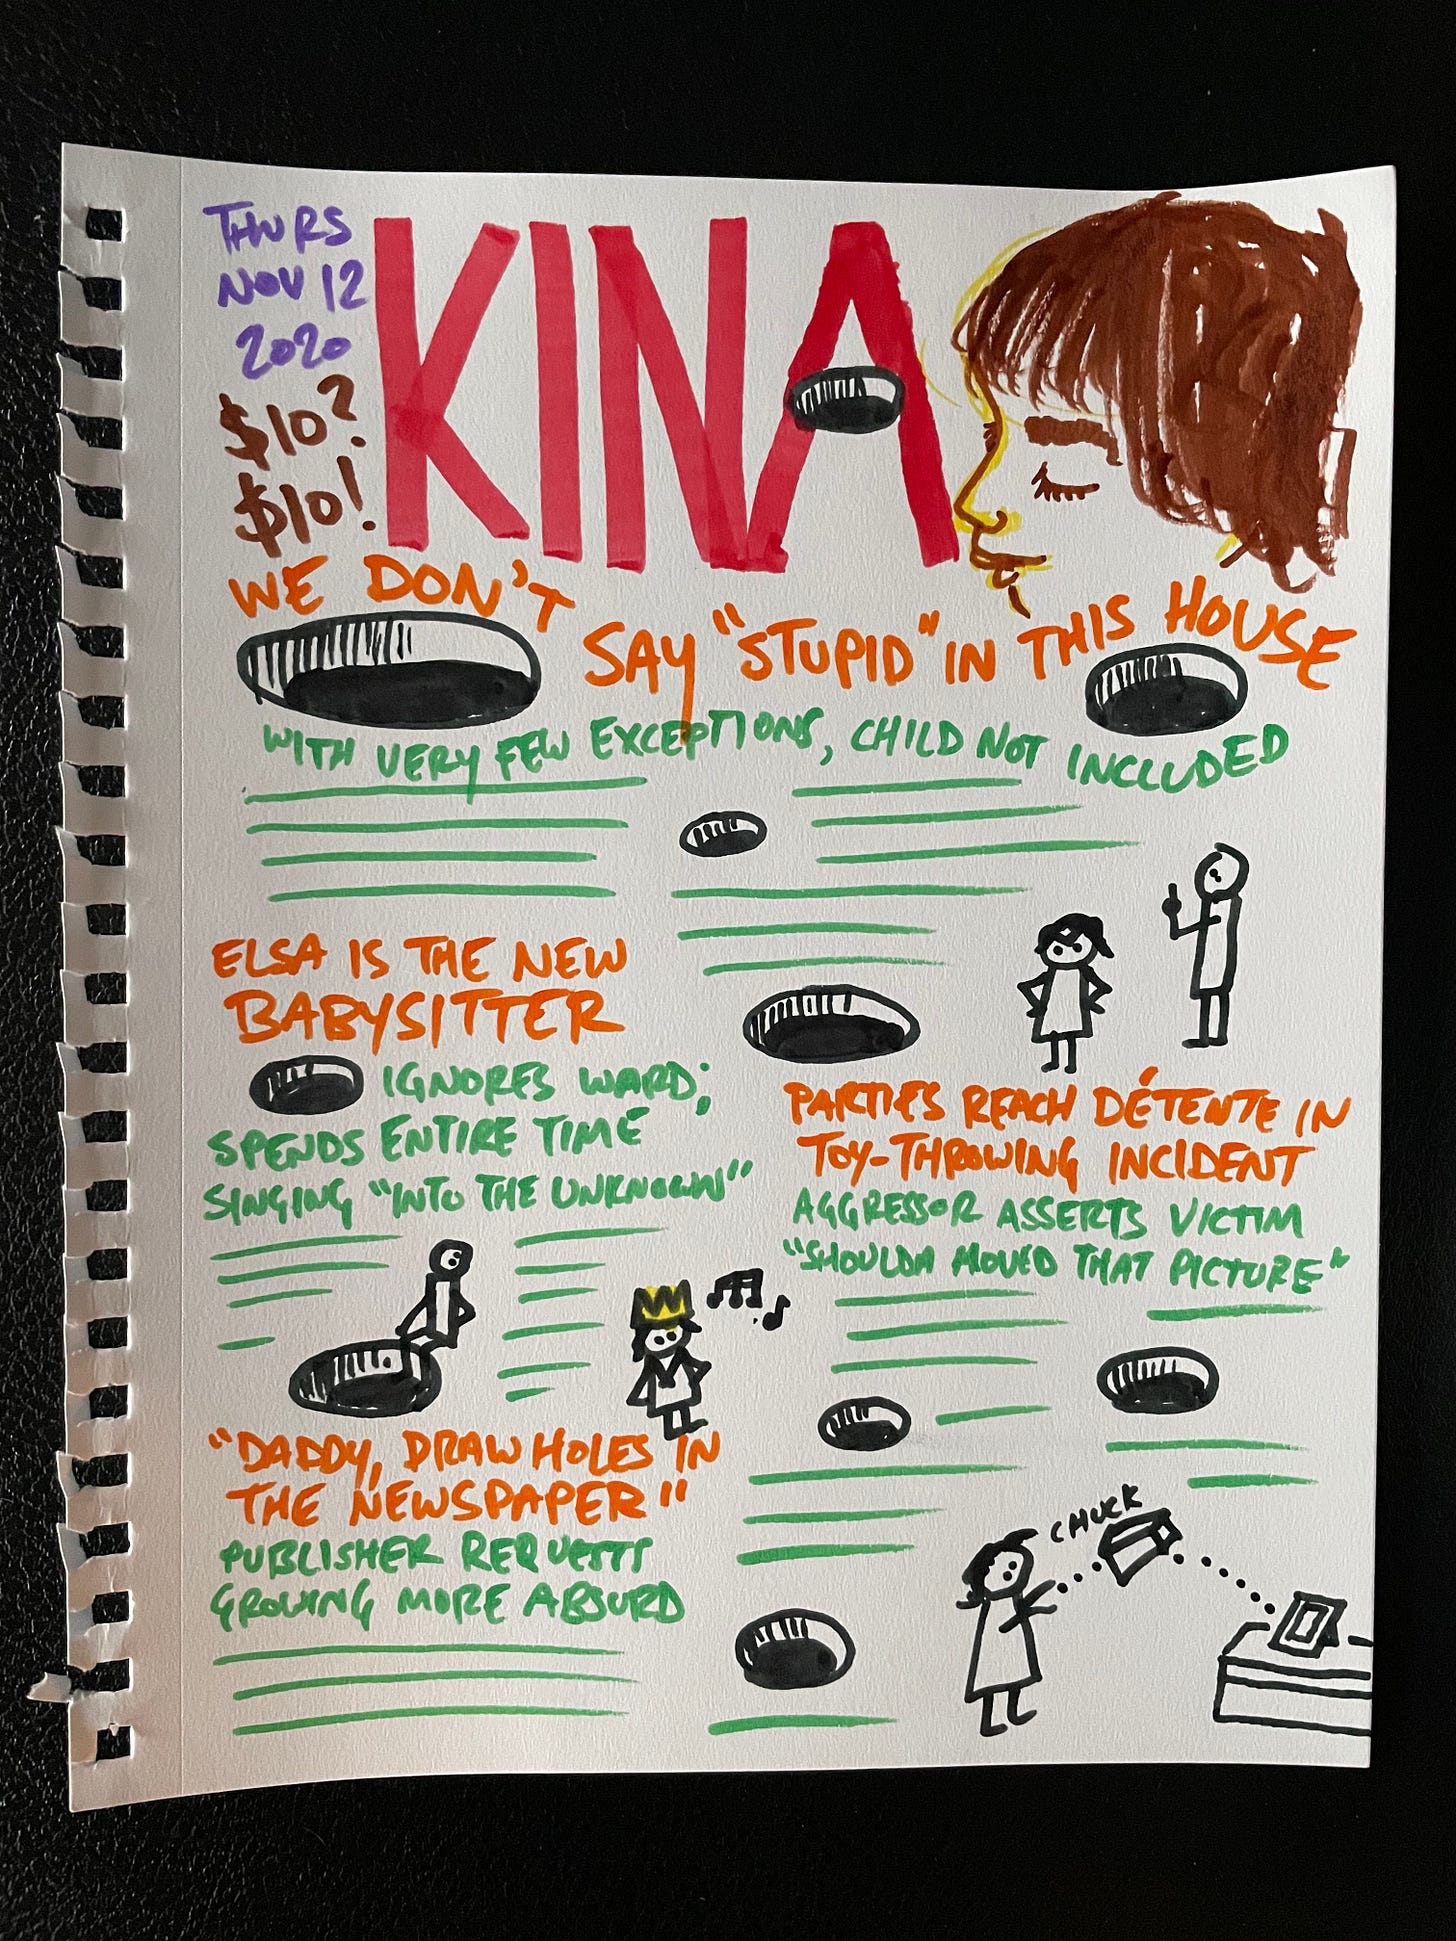 THURS
NOV 12
2020
$10?
$10!
KINA
WE DON'T SAY "STUPID" IN THIS HOUSE
WITH VERY FEW EXCEPTIONS, CHILD NOT INCLUDED
ELSA IS THE NEW
BABYSITTER
IGNORES WARD;
SPENDS ENTIRE TIME
SINGING "INTO THE UNKNOWN"
PARTIES REACH DÉTENTE IN
TOY-THROWING INCIDENT
AGGRESSOR ASSERTS VICTIM
"SHOULDA MOVED THAT PICTURE"
"DADDY, DRAW HOLES IN
THE NEWSPAPER"
PUBLISHER REQUESTS
GROWING MORE ABSURD
CHUCK